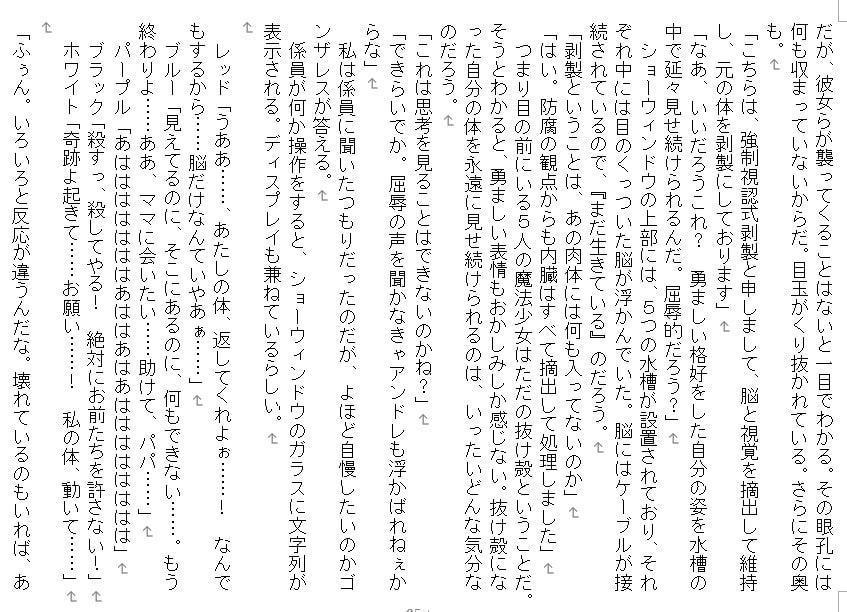 だが、彼女らが襲ってくることはないと一目でわかる。その眼孔には
何も収まっていないからだ。目玉がくり抜かれている。さらにその奥
も。
「こちらは、強制視認式剥製と申しまして、脳と視覚を摘出して維持
し、元の体を剥製にしております」
「なあ、いいだろうこれ？　勇ましい格好をした自分の姿を水槽の
中で延々見せ続けられるんだ。屈辱的だろう？」
　ショーウィンドウの上部には、５つの水槽が設置されており、それ
ぞれ中には目のくっついた脳が浮かんでいた。脳にはケーブルが接
続されているので、『まだ生きている』のだろう。
「剥製ということは、あの肉体には何も入ってないのか」
「はい。防腐の観点からも内臓はすべて摘出して処理しました」
　つまり目の前にいる５人の魔法少女はただの抜け殻ということだ。
そうとわかると、勇ましい表情もおかしみしか感じない。抜け殻にな
った自分の体を永遠に見せ続けられるのは、いったいどんな気分な
のだろう。
「これは思考を見ることはできないのかね？」
「できらいでか。屈辱の声を聞かなきゃアンドレも浮かばれねぇか
らな」
　私は係員に聞いたつもりだったのだが、よほど自慢したいのかゴ
ンザレスが答える。
　係員が何か操作をすると、ショーウィンドウのガラスに文字列が
表示される。ディスプレイも兼ねているらしい。
　レッド「うああ……、あたしの体、返してくれよぉ……！　なんで
もするから……脳だけなんていやあぁ……」
　ブルー「見えてるのに、そこにあるのに、何もできない……。もう
終わりよ……ああ、ママに会いたい……助けて、パパ……」
　パープル「あはははははははあはあはあはははははははは」
　ブラック「殺すっ、殺してやる！　絶対にお前たちを許さない！」
　ホワイト「奇跡よ起きて……お願い……！　私の体、動いて……」
「ふぅん。いろいろと反応が違うんだな。壊れているのもいれば、あ